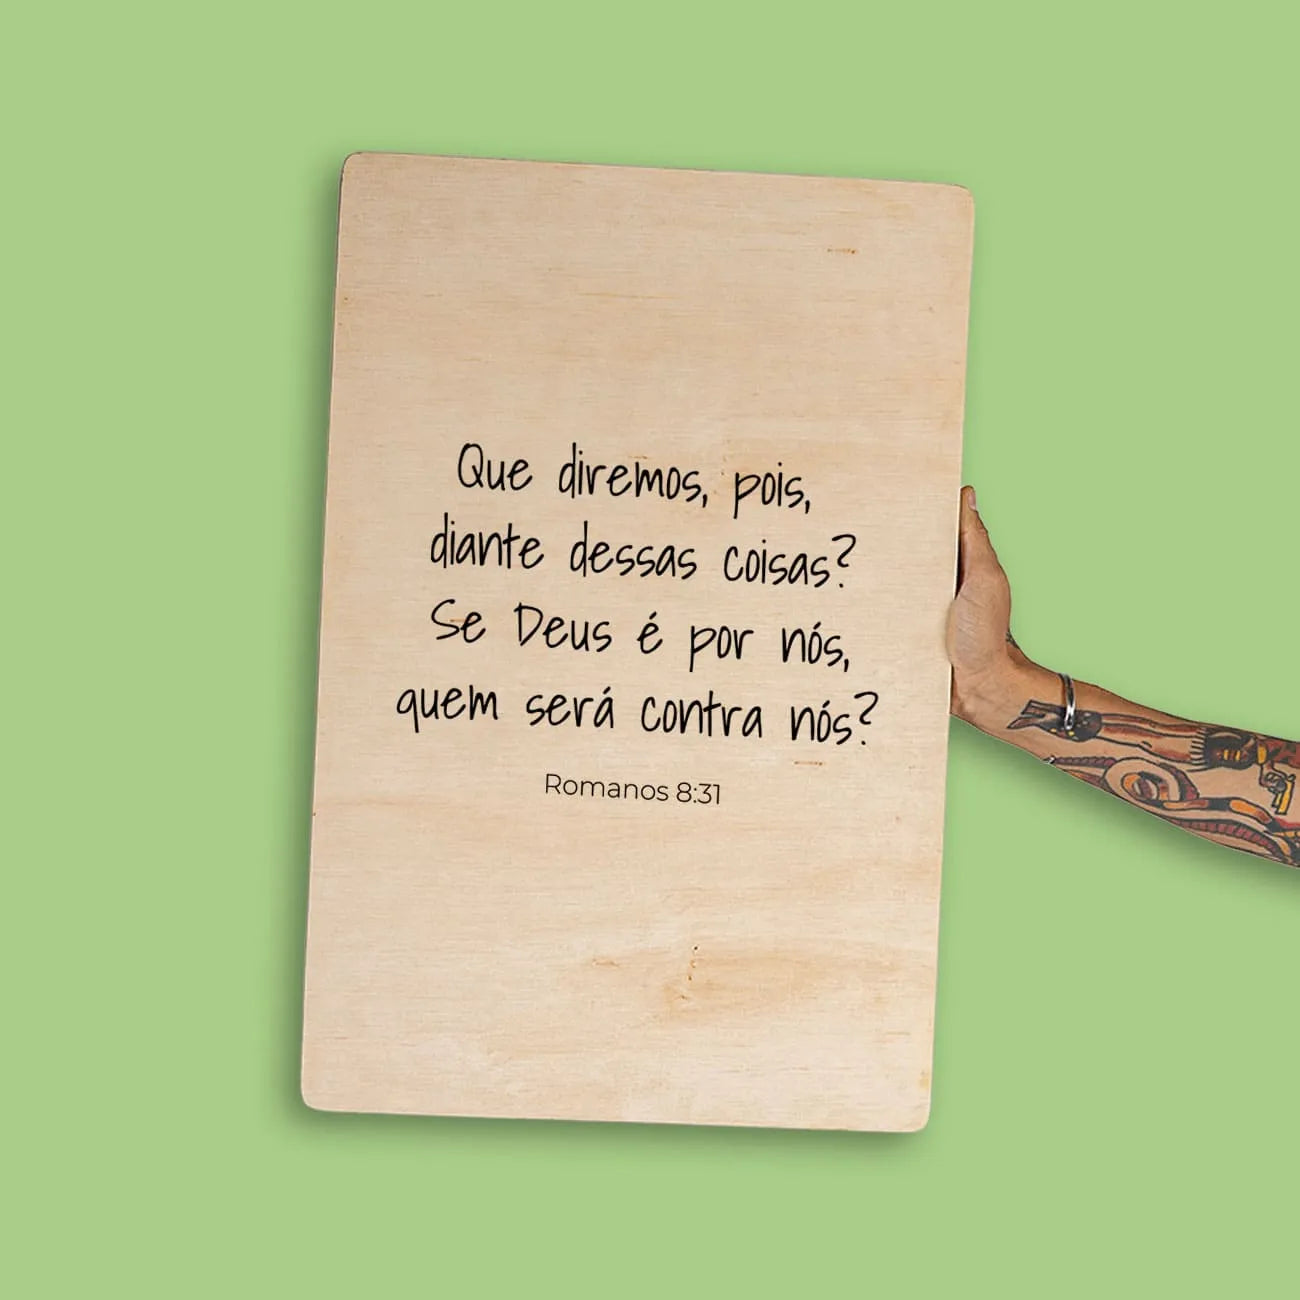 Que diremos, pois,
diante dessas coisas?
Se Deus é por nós,
quem será contra nós?
Romanos 8:31